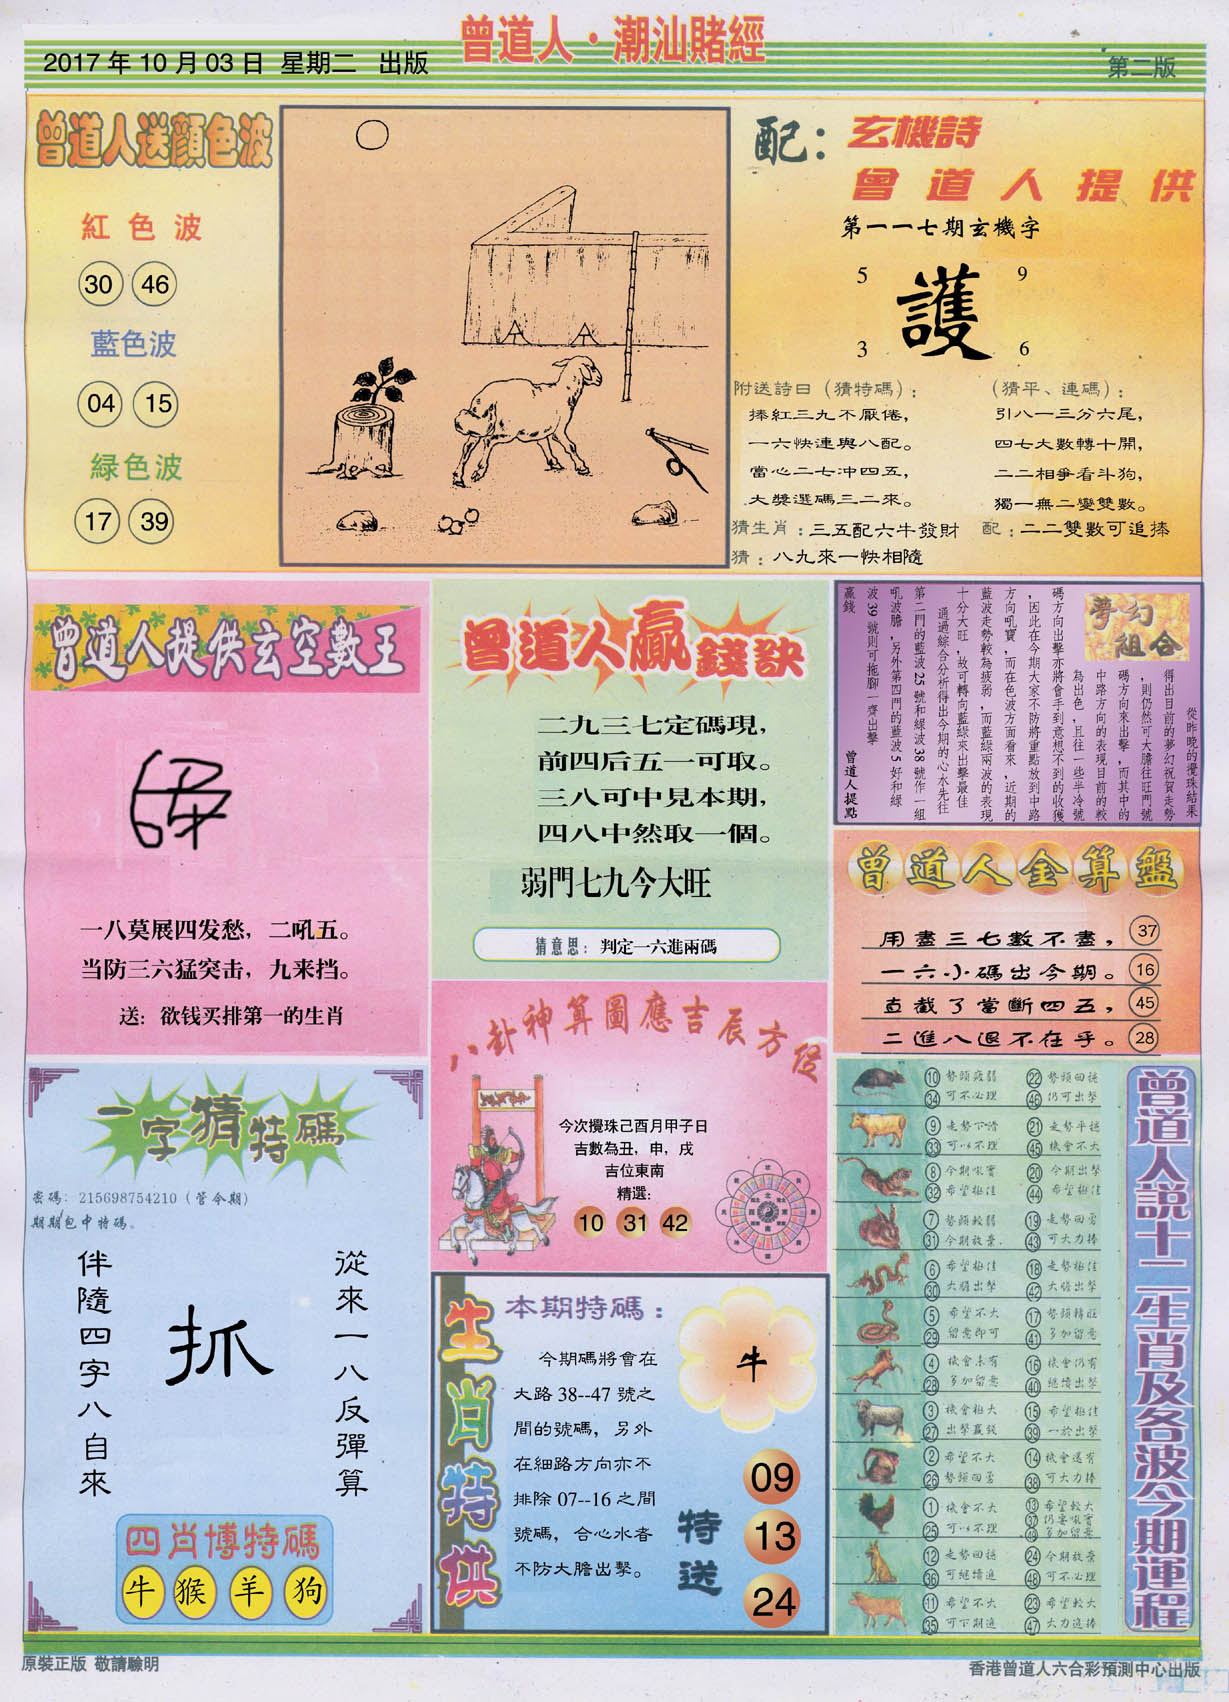 曾道人·潮汕賭經
2017年10月03日 星期二 出版
第二版
曾道人送顏色波
紅色波
30 46
藍色波
04 15
緑色波
17 39
配：玄機詩
曾道人提供
第一一七期玄機字
5 9
護
3 6
附送詩曰（猜特碼）：
捧紅三九不厭倦，
一六快連與八配。
當心二七冲四五，
大獎選碼三二來。
（猜平、連碼）：
引八一三分六尾，
四七大數轉十開，
二二相爭看斗狗，
獨一無二變雙數。
猜生肖：三五配六牛發財
配：二二雙數可追捧
猜：八九來一快相隨
曾道人提供玄空數王
一八莫展四发愁，二吼五。
当防三六猛突击，九来挡。
送：欲钱买排第一的生肖
曾道人贏錢訣
二九三七定碼現，
前四后五一可取。
三八可中見本期，
四八中然取一個。
弱門七九今大旺
猜意思：判定一六進兩碼
夢幻組合
從昨晚的攪珠結果
得出目前的夢幻祝賀走勢
，則仍然可大膽往旺門號
碼方向來出擊，而其中的
中路方向的表現目前的較
為出色，且往一些半冷號
碼方向出擊亦將會手到意想不到的收獲
，因此在今期大家不防將重點放到中路
方向吼寶，而在色波方面看來，近期的
藍波走勢較為疲弱，而藍綠兩波的表現
十分大旺，故可轉向藍綠來出擊最佳
通過綜合分析得出今期的心水先往
第二門的藍波25號和綠波38號作一組
吼波膽，另外第四門的藍波5好和綠
波39號則可拖腳一齊出擊
贏錢
曾道人提點
曾道人金算盤
用盡三七數不盡，37
一六小碼出今期。16
直截了當斷四五，45
二進八退不在乎。28
八卦神算圖應吉辰方位
今次攪珠己酉月甲子日
吉數為丑，申，戌
吉位東南
精選：
10 31 42
一字猜特碼
密碼：215698754210（管今期）
期期包中特碼。
從來一八反彈算
抓
伴隨四字八自來
四肖博特碼
牛 猴 羊 狗
生肖特供
本期特碼：
今期碼將會在
大路38--47號之
間的號碼，另外
在細路方向亦不
排除07--16之間
號碼，合心水者
不防大膽出擊。
牛
特送
09
13
24
曾道人説十二生肖及各波今期運程
10 勢頭疲弱 22 勢頭回穩
34 可不必理 46 仍可出擊
9 走勢下滑 21 走勢平穩
33 可以不理 45 機會不大
8 今期吼寶 20 今期出擊
32 希望極佳 44 希望極佳
7 勢頭較弱 19 走勢回勇
31 今期放棄 43 可大力捧
6 希望極佳 18 走勢極佳
30 大膽出擊 42 大膽出擊
5 希望不大 17 勢頭轉旺
29 留意即可 41 多加留意
4 機會未有 16 機會仍有
28 多加留意 40 繼續出擊
3 機會極大 15 希望極佳
27 出擊贏錢 39 一於出擊
2 希望不大 14 機會還有
26 勢頭回勇 38 可大力捧
1 機會不大 13 希望較大
25 可以不理 37 仍要吼實
49 多加留意
12 走勢回穩 24 今期放棄
36 可繼續追 48 可不必理
11 希望不大 23 希望較大
35 可下期追 47 大力追捧
原裝正版 敬請驗明
香港曾道人六合彩預測中心出版